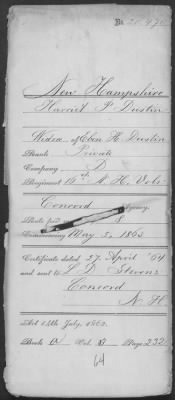 No. 20,970
New Hampshire
Harriet P. Dustin
Widow of Eben H. Dustin
Rank Private
Company D
Regiment 16th N. H. Vols
Concord Agency
Rate per 8
Commencing May 5, 1863
Certificate dated 27 April '64
and sent to L D Stevens
Concord
N H
Act 14th July, 1862.
Book Vol. B Page 232
64